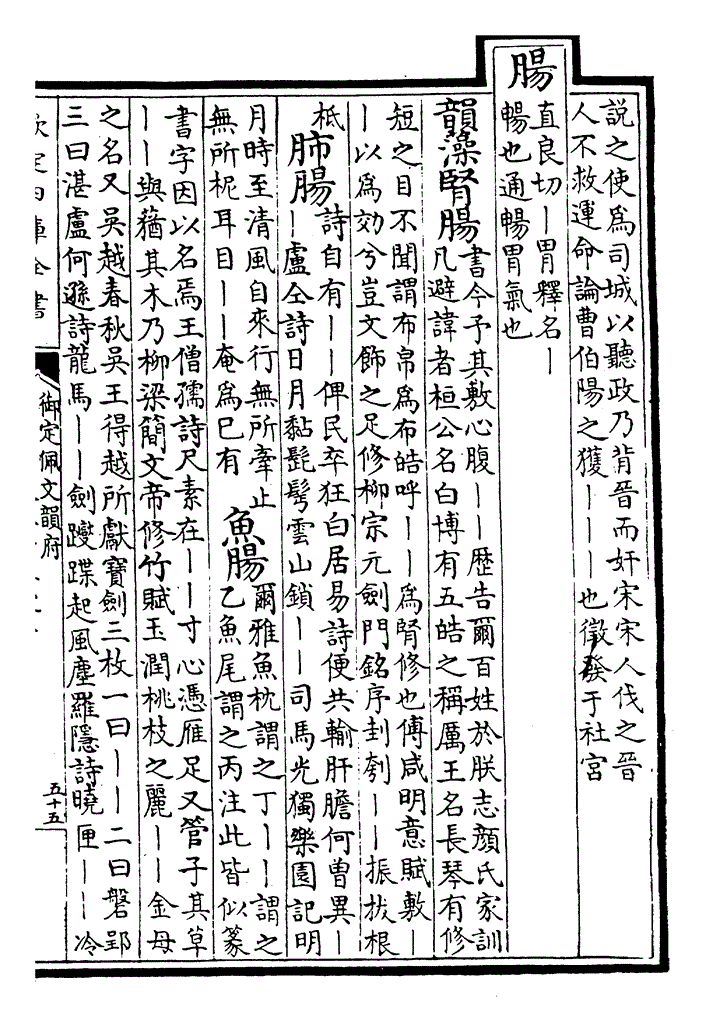 說之使爲司城以聽政乃背晉而奸宋宋人伐之晉
人不救運命論曹伯陽之獲丨丨丨也徵發于社宮
腸
直良切丨胃釋名丨
暢也通暢胃氣也
韻藻腎腸
書今予其敷心腹丨丨歷告爾百姓於朕志顔氏家訓
凡避諱者桓公名白博有五皓之稱厲王名長琴有修
短之目不聞謂布帛爲布皓呼丨丨爲腎修也傅咸明意賦敷丨
丨以爲効兮豈文飾之足修柳宗元劍門銘序刲刳丨丨振拔根
柢
肺腸
詩自有丨丨俾民卒狂白居易詩便共輸肝膽何曾異丨
丨盧仝詩日月黏髭髩雲山鎖丨丨司馬光獨樂園記明
月時至清風自來行無所牽止
無所柅耳目丨丨奄爲已有
魚腸
爾雅魚枕謂之丁丨丨謂之
乙魚尾謂之丙注此皆似篆
書字因以名焉王僧孺詩尺素在丨丨寸心憑雁足又管子其草
丨丨與蕕其木乃柳梁簡文帝修竹賦玉潤桃枝之麗丨丨金母
之名又吳越春秋吳王得越所獻寶劍三枚一曰丨丨二曰磐郢
三曰湛盧何遜詩龍馬丨丨劍躞蹀起風塵羅隱詩曉匣丨丨冷
欽定四庫全書
御定佩文韻府
五十五